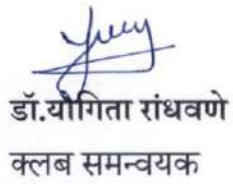 डॉ.योगिता रांधवणे
क्लब समन्वयक